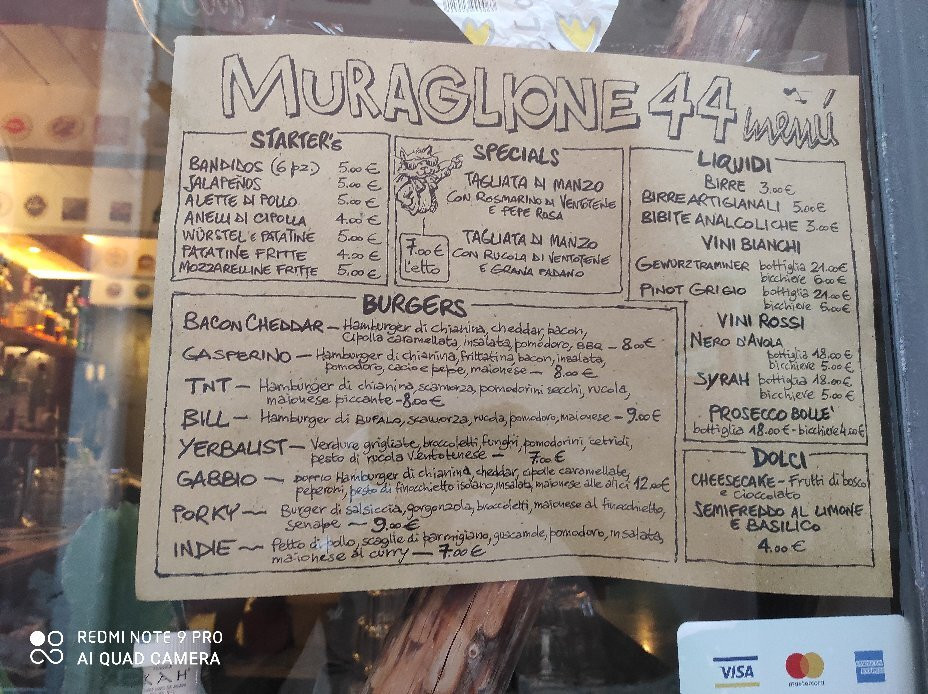 MURAGLIONE 44 menú
STARTER's
BANDIDOS (6 pz.) 5.00 €
JALAPEÑOS 5.00 €
ALETTE DI POLLO 5.00 €
ANELLI DI CIPOLLA 4.00 €
WÜRSTEL E PATATINE 5.00 €
PATATINE FRITTE 4.00 €
MOZZARELLINE FRITTE 5.00 €
SPECIALS
TAGLIATA DI MANZO
CON ROSMARINO DI VENTOTENE
E PEPE ROSA
7.00 €
L'etto
TAGLIATA DI MANZO
CON RUCOLA DI VENTOTENE
E GRANA PADANO
LIQUIDI
BIRRE 3.00 €
BIRRE ARTIGIANALI 5.00 €
BIBITE ANALCOLICHE 3.00 €
VINI BIANCHI
GEWURZTRAMINER bottiglia 21.00 €
bicchiere 6.00 €
PINOT GRIGIO bottiglia 21.00 €
bicchiere 6.00 €
VINI ROSSI
NERO D'AVOLA
bottiglia 18.00 €
bicchiere 5.00 €
SYRAH bottiglia 18.00 €
bicchiere 5.00 €
PROSECCO BOLLE'
bottiglia 18.00 € - bicchiere 4.00 €
BURGERS
BACON CHEDDAR - Hamburger di chianina, cheddar, bacon,
cipolla caramellata, insalata, pomodoro, BBQ - 8.00 €
GASPERINO - Hamburger di chianina, frittatina, bacon, insalata,
pomodoro, cacio e pepe, maionese - 8.00 €
TNT - Hamburger di chianina, scamorza, pomodorini secchi, rucola,
maionese piccante - 8.00 €
BILL - Hamburger di BUFALO, scamorza, rucola, pomodoro, maionese - 9.00 €
YERBALIST - Verdure grigliate, broccoletti, funghi, pomodorini, cetrioli,
pesto di rucola Ventotenese - 7.00 €
GABBIO - DOPPIO Hamburger di chianina, cheddar, cipolle caramellate,
peperoni, pesto di finocchietto isolano, insalata, maionese alle alici 12.00 €
PORKY - Burger di salsiccia, gorgonzola, broccoletti, maionese al finocchietto,
senape - 9.00 €
INDIE - Petto di pollo, scaglie di parmigiano, guacamole, pomodoro, insalata,
maionese al curry - 7.00 €
DOLCI
CHEESECAKE - Frutti di bosco
e cioccolato
SEMIFREDDO AL LIMONE
E BASILICO
4.00 €
REDMI NOTE 9 PRO
AI QUAD CAMERA
VISA
mastercard